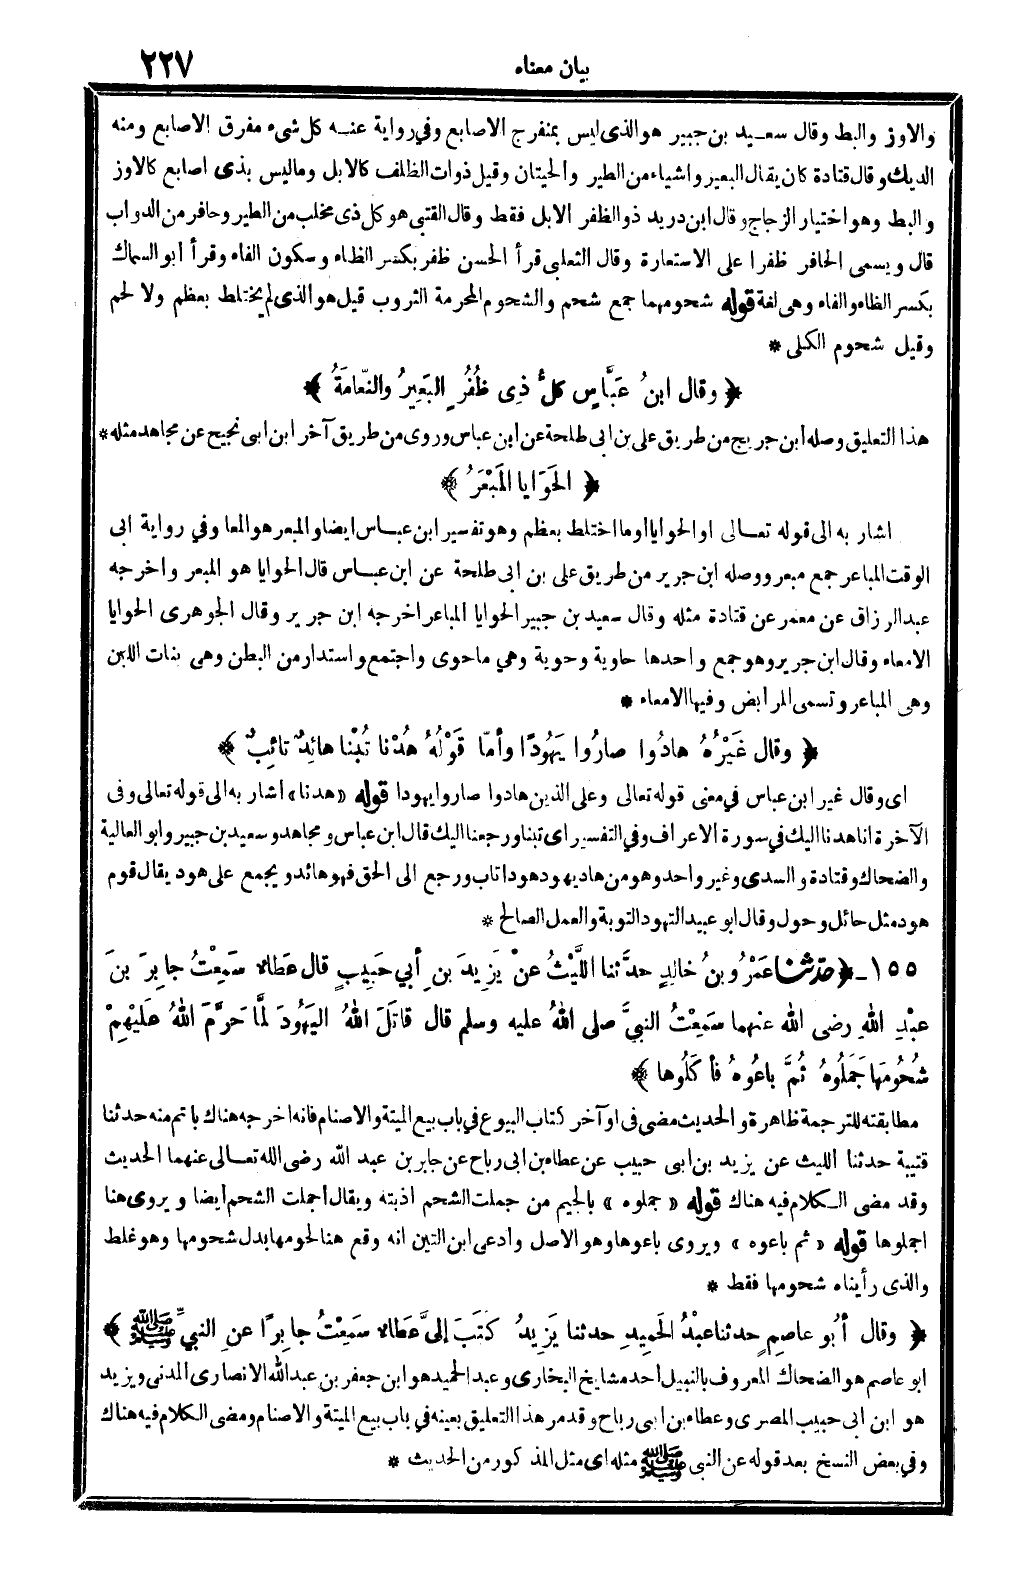 بيان معناه ٢٢٧
والاوز والبط وقال سعيد بن جبير هو الذى ليس بمنفرج الاصابع وفي رواية عنه كل شىء مفرق الاصابع ومنه
الديك وقال قتادة كان يقال البعير واشياء من الطير والحيتان وقيل ذوات الظلف كالابل وما ليس بذى اصابع كالاوز
والبط وهو اختيار الزجاج وقال ابن دريد ذو الظفر الابل فقط وقال القتبى هو كل ذى مخلب من الطير وحافر من الدواب
قال ويسمى الحافر ظفرا على الاستعارة وقال الثعلبى قرأ الحسن ظفر بكسر الظاء وسكون الفاء وقرأ أبو السماك
بكسر الظاء والفاء وهى لغة قوله شحومهما جمع شحم والشحوم المحرمة الثروب قيل هو الذى لم يختلط بعظم ولا لحم
وقيل شحوم الكلى *
﴿ وقال ابنُ عَبَّاسٍ كلُّ ذِى ظُفُرٍ البَعِيرُ والنَّعامَةُ ﴾
هذا التعليق وصله ابن جريج من طريق على بن ابى طلحة عن ابن عباس وروى من طريق آخر ابن ابى نجيح عن مجاهد مثله *
﴿ الحَوَايا المَبْعَرُ ﴾
اشار به الى قوله تعالى او الحوايا أو ما اختلط بعظم وهو تفسير ابن عباس ايضا والمبعر هو المعا وفي رواية ابى
الوقت المباعر جمع مبعر ووصله ابن جرير من طريق على بن ابى طلحة عن ابن عباس قال الحوايا هو المبعر واخرجه
عبد الرزاق عن معمر عن قتادة مثله وقال سعيد بن جبير الحوايا المباعر اخرجه ابن جرير وقال الجوهرى الحوايا
الامعاء وقال ابن جرير وهو جمع واحدها حاوية وحوية وهي ما حوى واجتمع واستدار من البطن وهى بنات اللبن
وهى المباعر وتسمى المرابض وفيها الامعاء *
﴿ وقال غَيْرُهُ هادُوا صارُوا يَهُودًا وأمَّا قَوْلُهُ هُدْنا تُبْنا هائِدٌ تائِبٌ ﴾
اى وقال غير ابن عباس في معنى قوله تعالى وعلى الذين هادوا صاروا يهودا قوله «هدنا» اشار به الى قوله تعالى وفى
الآخرة انا هدنا اليك في سورة الاعراف وفي التفسير اى تبنا ورجعنا اليك قال ابن عباس ومجاهد وسعيد بن جبير وابو العالية
والضحاك وقتادة والسدى وغير واحد وهو من هاد يهود هودا تاب ورجع الى الحق فهو هائد ويجمع على هود يقال قوم
هود مثل حائل وحول وقال ابو عبيد التهود التوبة والعمل الصالح *
١٥٥ - ﴿ حدثنا عَمْرُو بنُ خالِدٍ حدَّثنا اللَّيْثُ عنْ يَزِيدَ بنِ أبي حَبِيبٍ قال عَطاء سَمِعْتُ جابِرَ بنَ
عبْدِ اللهِ رضى الله عنهما سَمِعْتُ النبيَّ صلى اللهُ عليه وسلم قال قاتَلَ اللهُ اليَهُودَ لمَّا حَرَّمَ اللهُ عَلَيْهِمْ
شُحُومَها جَمَلُوهُ ثُمَّ باعُوهُ فأكَلُوها ﴾
مطابقته للترجمة ظاهرة والحديث مضى فى اوآخر كتاب البيوع في باب بيع الميتة والاصنام فانه اخرجه هناك باتم منه حدثنا
قتيبة حدثنا الليث عن يزيد بن ابى حبيب عن عطاء بن ابى رباح عن جابر بن عبد الله رضى الله تعالى عنهما الحديث
وقد مضى الكلام فيه هناك قوله «جملوه» بالجيم من جملت الشحم اذبته ويقال اجملت الشحم أيضا ويروى هنا
اجملوها قوله «ثم باعوه» ويروى باعوها وهو الاصل وادعى ابن التين انه وقع هنا لحومها بدل شحومها وهو غلط
والذى رأيناه شحومها فقط *
﴿ وقال أبُو عاصِمٍ حدثنا عبْدُ الحَمِيدِ حدثنا يَزِيدُ كتَبَ إلىَّ عَطاء سَمِعْتُ جابِرًا عنِ النبيِّ ﷺ ﴾
ابو عاصم هو الضحاك المعروف بالنبيل أحد مشايخ البخارى وعبد الحميد هو ابن جعفر بن عبد الله الانصارى المدنى ويزيد
هو ابن ابى حبيب المصرى وعطاء بن ابى رباح وقد مر هذا التعليق بعينه في باب بيع الميتة والاصنام ومضى الكلام فيه هناك
وفي بعض النسخ بعد قوله عن النبى ﷺ مثله اى مثل المذكور من الحديث *